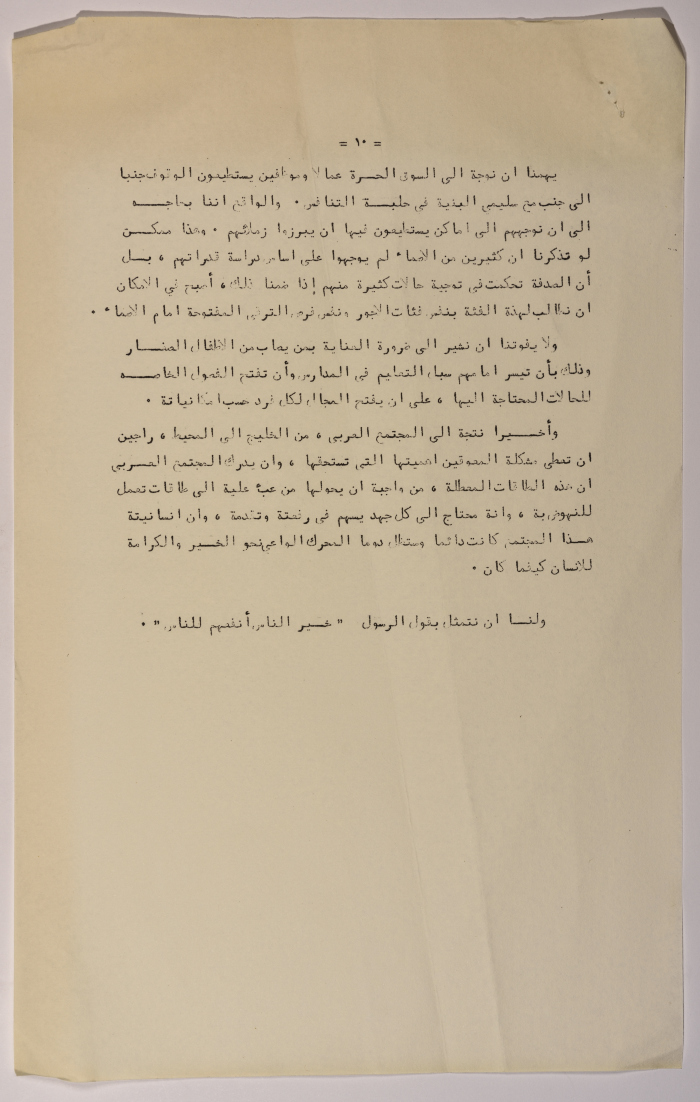 = ١٠ =
يهمنا ان نوجة الى السوق الحـــرة عمالا وموظفين يستطيعون الوقوف جنبا
الى جنب مع سليمي البنية في حلبـــة التنافس . والواقع اننا بحاجـــه
الى ان نوجههم الى اماكن يستطيعون فيها ان يبرزوا زملائهم . وهذا ممكــن
لو تذكرنا ان كثيرين من الاصحاء لم يوجهوا على اساس دراسة قدراتهم ، بــل
أن الصدفة تحكمت في توجية حالات كثيرة منهم إذا ضمنا ذلك ، أصبح في الامكان
ان نطالب لهذة الفئة بنفس فئات الاجور ونفس فرص الترقي المفتوحة امام الاصحاء .
ولا يفوتنا ان نشير الى ضرورة العناية بمن يصاب من الاطفال الصغــار
وذلك بأن تيسر امامهم سبل التعليم في المدارس وأن تفتح الفصول الخاصــه
للحالات المحتاجة اليها ، على ان يفتح المجال لكل فرد حسب امكانياتة .
وأخــيرا نتجة الى المجتمع العربي ، من الخليج الى المحيط ، راجين
ان تعطى مشكلة المعوقين اهميتها التي تستحقها ، وان يدرك المجتمع العــربي
ان هذه الطاقات المعطلة ، من واجبة ان يحولها من عبء علية الى طاقات تعمل
للنهوض بة ، وانة محتاج الى كل جهد يسهم في رفعتة وتقدمة ، وان انسانيتة
هـــذا المجتمع كانت دائما وستظل دوما المحرك الواعي نحو الخــير والكرامة
للانسان كيفما كان .
ولنــا ان نتمثل بقول الرسول " خــير الناس أنفعهم للناس " .